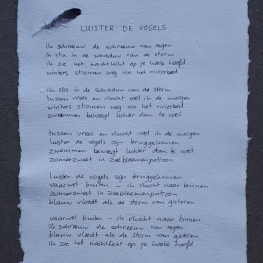 LUISTER DE VOGELS
ik schreeuw de schreeuw van regen
ik sta in de schaduw van de storm
ik zie het nachtlicht op je hoofd
winters stromen weg in het rivierbed
ik sta in de schaduw van de storm
tussen vrees en vlucht veel in de morgen
winters stromen weg in het rivierbed
zwemmen beweegt lichter dan te veel
tussen vrees en vlucht veel in de morgen
luister de vogels zijn teruggekomen
zwemmen beweegt lichter dan te veel
zomerzweet in zeebloemenpatroon
luister de vogels zijn teruggekomen
vaarwel buiten - ik vlucht naar binnen
zomerzweet in zeebloemenpatroon
blauw vloeit als de storm van gisteren
vaarwel buiten - ik vlucht naar binnen
ik schreeuw de schreeuw van regen
blauw vloeit als de storm van gisteren
ik zie het nachtlicht op je hoofd